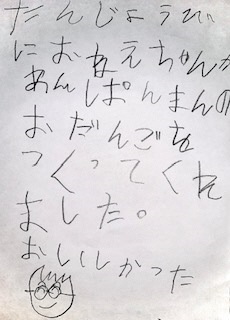 たんじょうび
におねえちゃんが
あんぱんまんの
おだんごを
つくってくれ
ました。
おいしかった